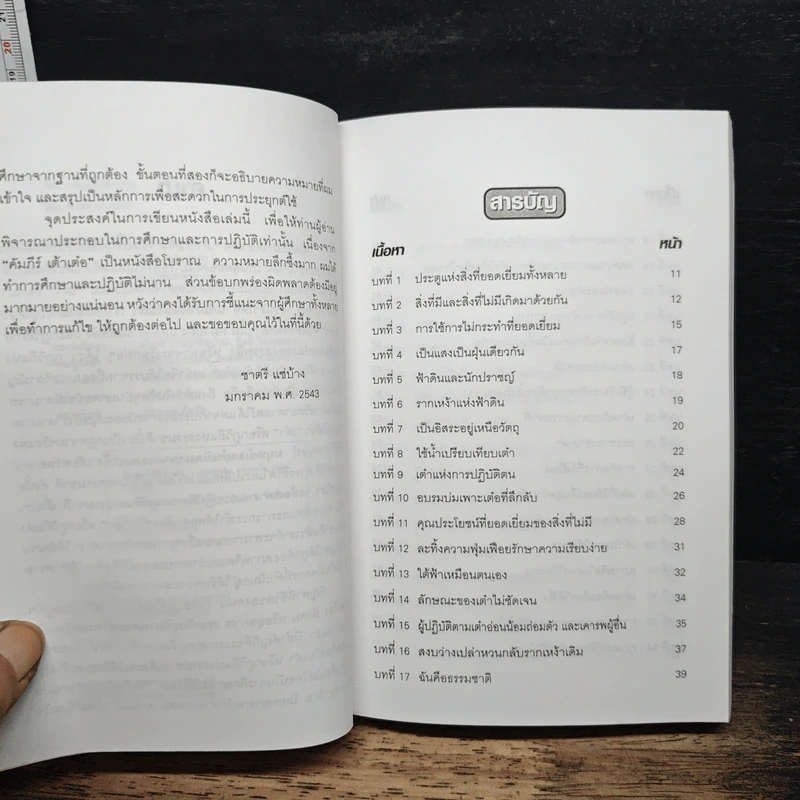 21
20
19
ศึกษาจากฐานที่ถูกต้อง ขั้นตอนที่สองก็จะอธิบายความหมายที่ผม
เข้าใจ และสรุปเป็นหลักการเพื่อสะดวกในการประยุกต์ใช้
จุดประสงค์ในการเขียนหนังสือเล่มนี้ เพื่อให้ท่านผู้อ่าน
พิจารณาประกอบในการศึกษาและการปฏิบัติเท่านั้น เนื่องจาก
“คัมภีร์ เต้าเต๋อ” เป็นหนังสือโบราณ ความหมายลึกซึ้งมาก ผมได้
ทำการศึกษาและปฏิบัติไม่นาน ส่วนข้อบกพร่องผิดพลาดต้องมีอยู่
มากมายอย่างแน่นอน หวังว่าคงได้รับการชี้แนะจากผู้ศึกษาทั้งหลาย
เพื่อทำการแก้ไข ให้ถูกต้องต่อไป และขอขอบคุณไว้ในที่นี้ด้วย
ชาตรี แซ่บ้าง
มกราคม พ.ศ. 2543
สารบัญ
เนื้อหา หน้า
บทที่ 1 ประตูแห่งสิ่งที่ยอดเยี่ยมทั้งหลาย 11
บทที่ 2 สิ่งที่มีและสิ่งที่ไม่มีเกิดมาด้วยกัน 12
บทที่ 3 การใช้การไม่กระทำที่ยอดเยี่ยม 15
บทที่ 4 เป็นแสงเป็นฝุ่นเดียวกัน 17
บทที่ 5 ฟ้าดินและนักปราชญ์ 18
บทที่ 6 รากเหง้าแห่งฟ้าดิน 19
บทที่ 7 เป็นอิสระอยู่เหนือวัตถุ 20
บทที่ 8 ใช้น้ำเปรียบเทียบเต๋า 22
บทที่ 9 เต๋าแห่งการปฏิบัติตน 24
บทที่ 10 อบรมบ่มเพาะเต๋อที่ลึกลับ 26
บทที่ 11 คุณประโยชน์ที่ยอดเยี่ยมของสิ่งที่ไม่มี 28
บทที่ 12 ละทิ้งความฟุ่มเฟือยรักษาความเรียบง่าย 31
บทที่ 13 ใต้ฟ้าเหมือนตนเอง 32
บทที่ 14 ลักษณะของเต๋าไม่ชัดเจน 34
บทที่ 15 ผู้ปฏิบัติตามเต๋าอ่อนน้อมถ่อมตัว และเคารพผู้อื่น 35
บทที่ 16 สงบว่างเปล่าหวนกลับรากเหง้าเดิม 37
บทที่ 17 ฉันคือธรรมชาติ 39